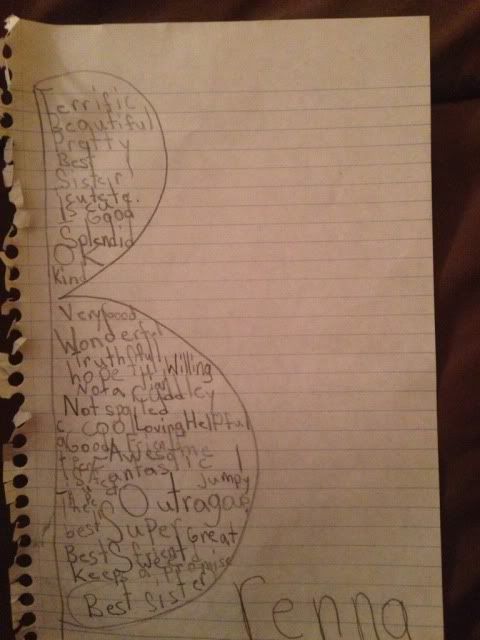 Terrific
Beautiful
Pretty
Best
Sister
Is Good
Splendid
OK
Kind
Very good
Wonderful
Truthful Willing
hopeful
Not a liar Cuddley
Not spoiled
COOL Loving Helpful
Good Friend
Awesome
Jumpy
The Outragae
best Super Great
Best friend
Sweet
Keeps a promise
Best Sister
renna